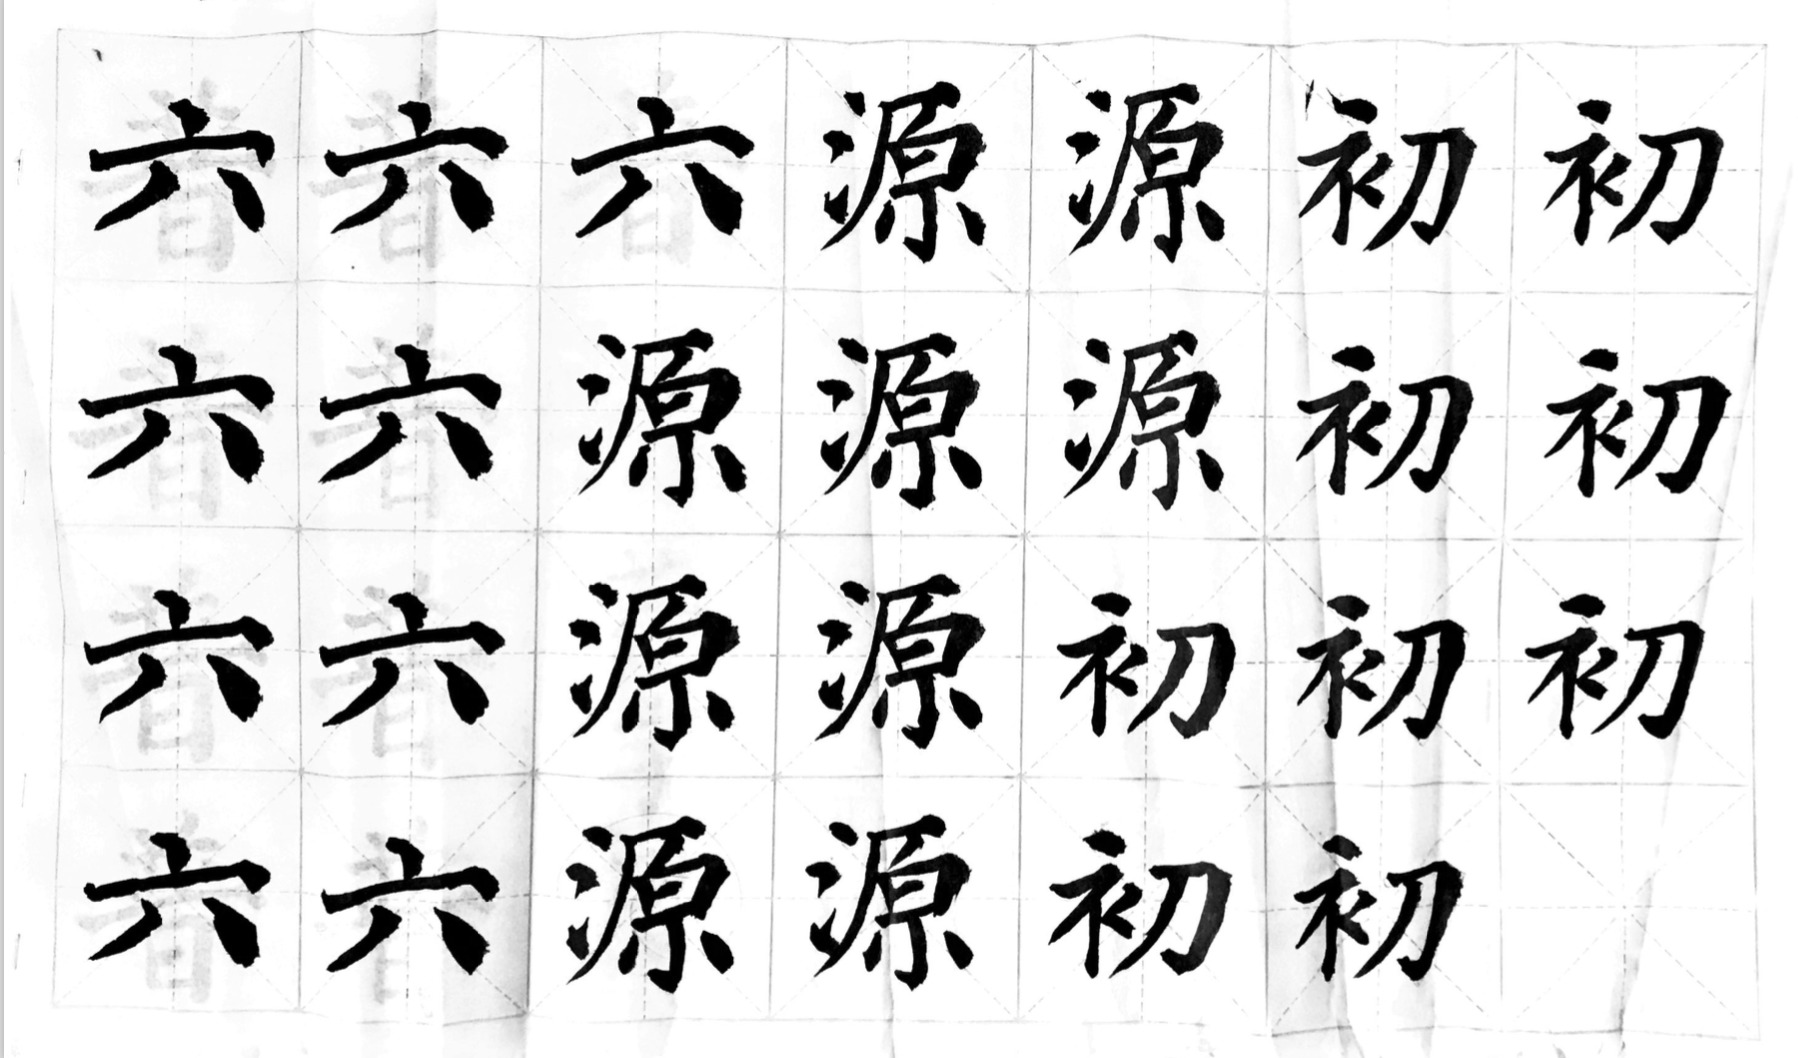 六六六源源初初
六六源源源初初
六六源源初初初
六六源源初初